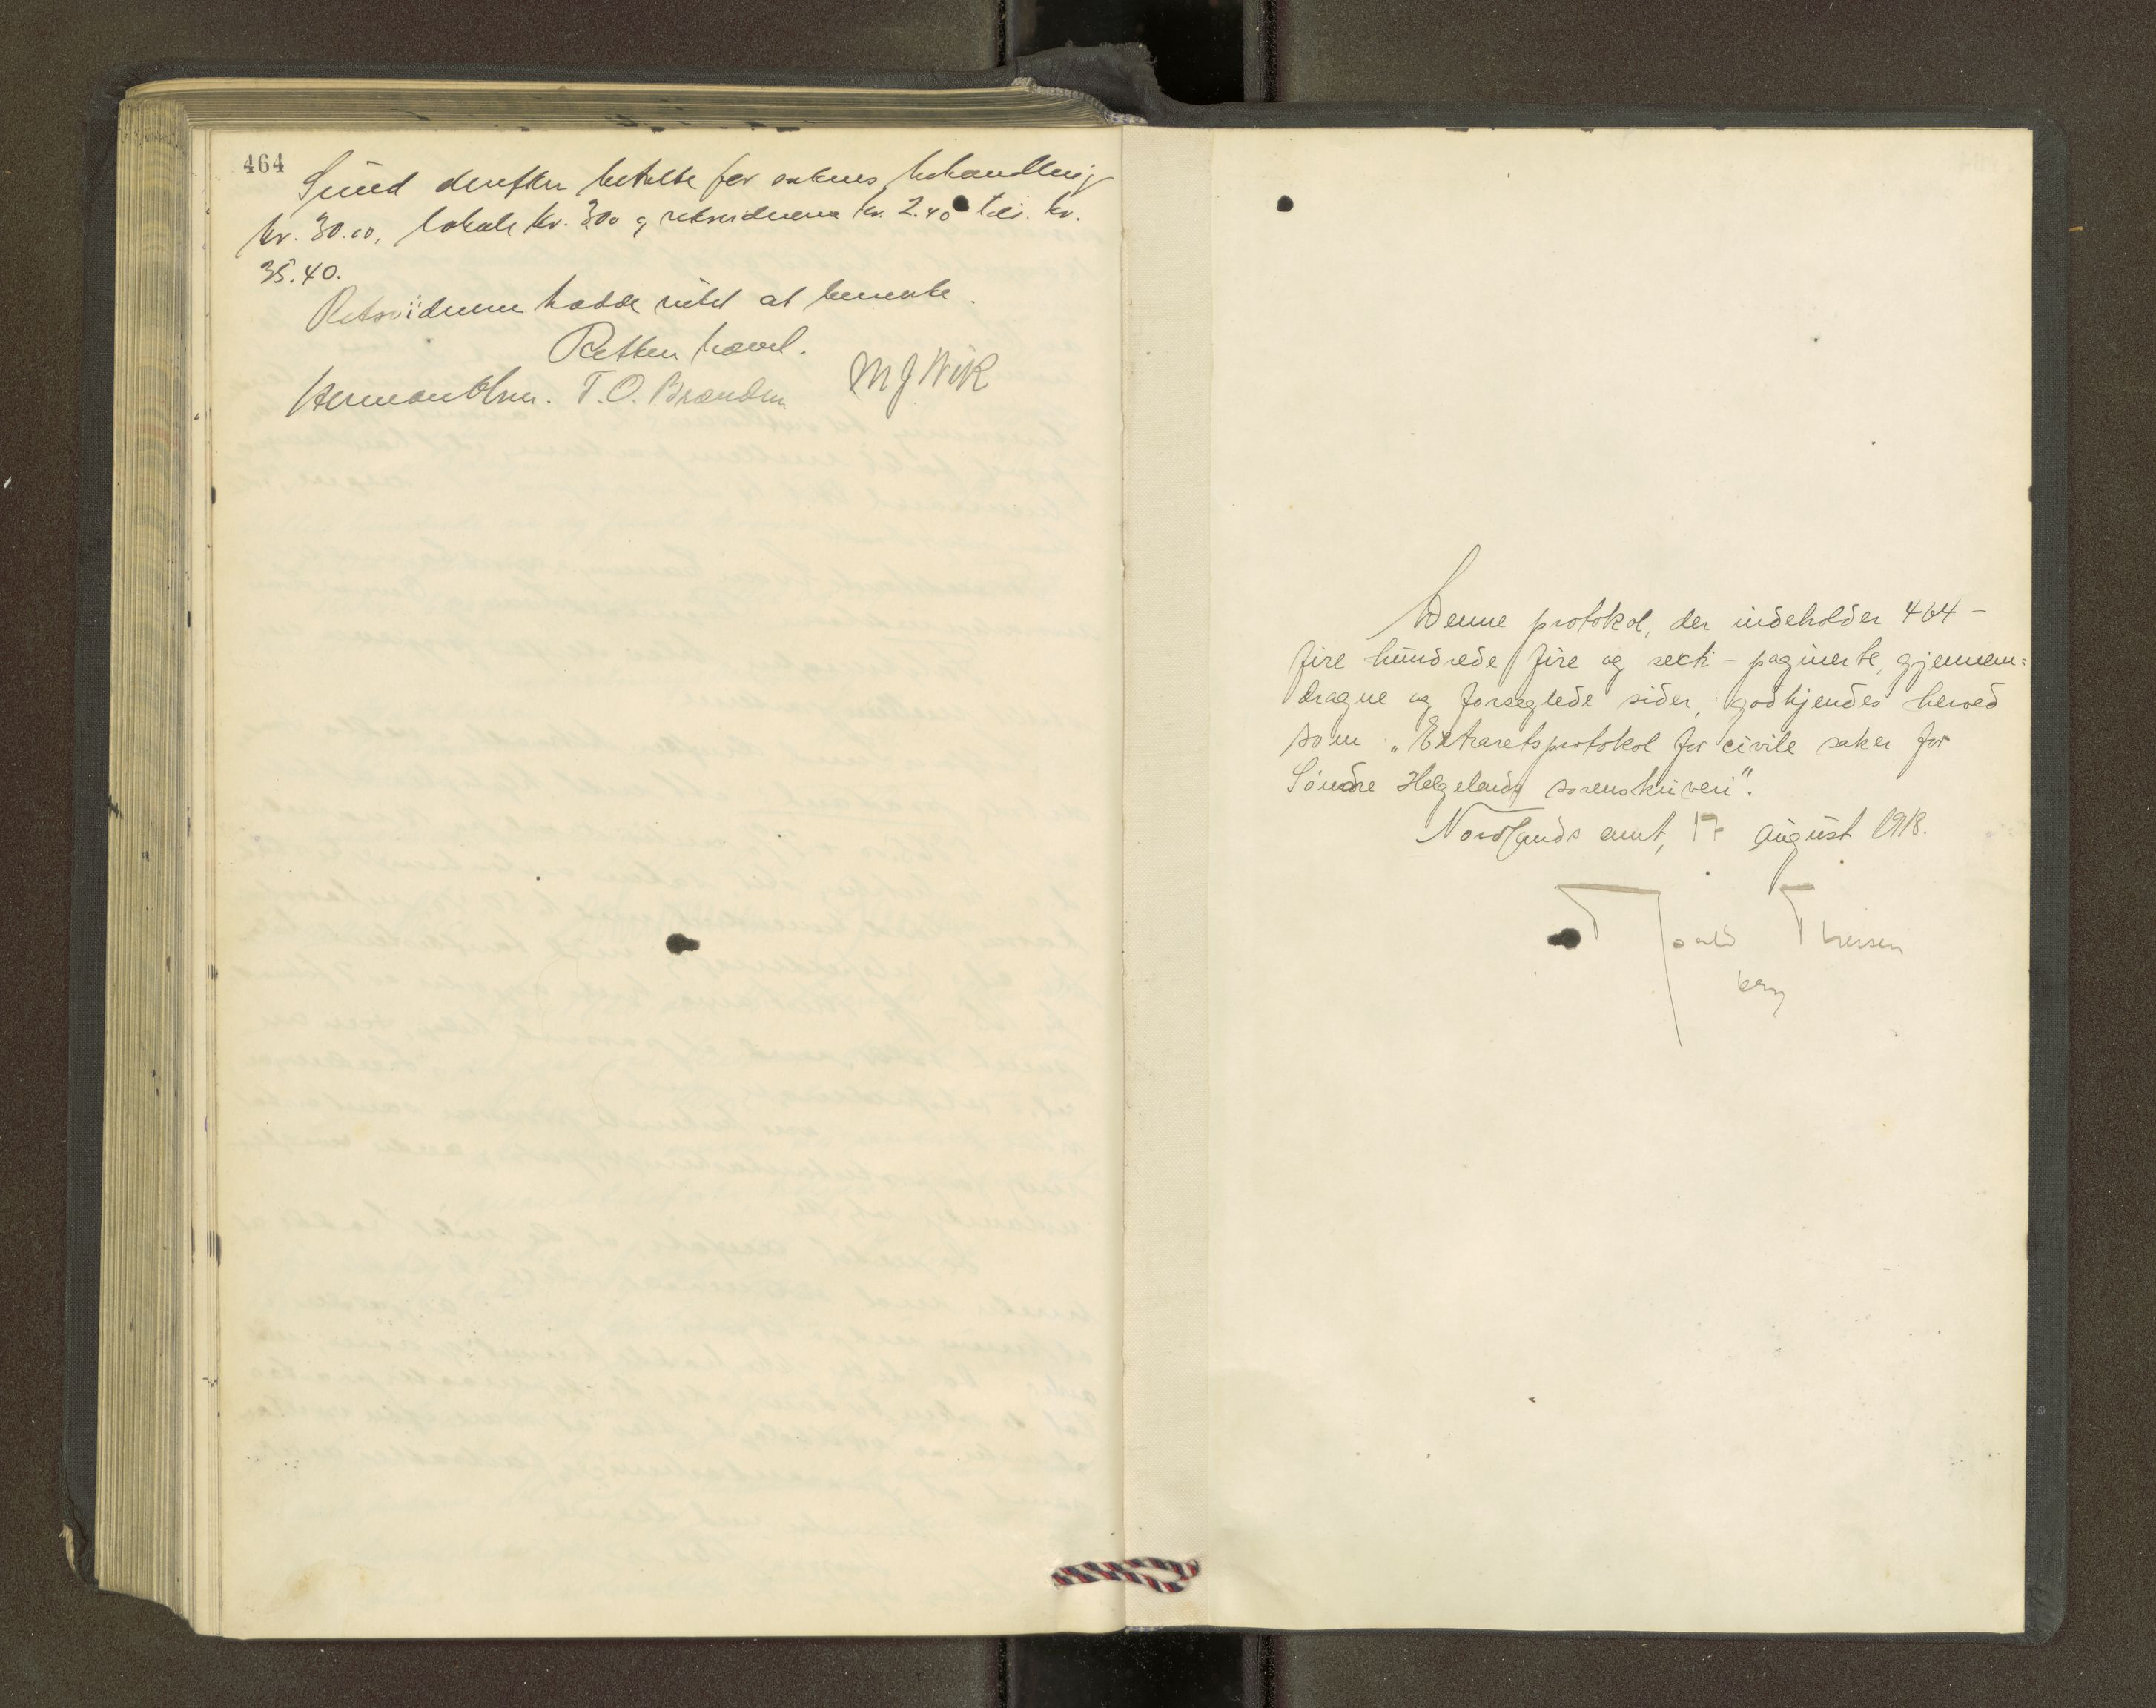 464
Sund derefter betalte for sakens behandling
kr. 30.00, lokale kr. 3.00 og retsvidnene kr. 2.40 tils. kr.
35.40.
Retsvidnene hadde intet at bemerke.
Retten hævet.
Herman Olsen. T. O. Brændmo M J Wik
Denne protokol, der indeholder 464 -
fire hundrede fire og sexti - paginerte, gjennem=
dragne og forseglede sider, godkjendes herved
som „Extraretsprotokol for civile saker for
Søndre Helgelands sorenskriveri".
Nordlands amt, 17 august 1918.